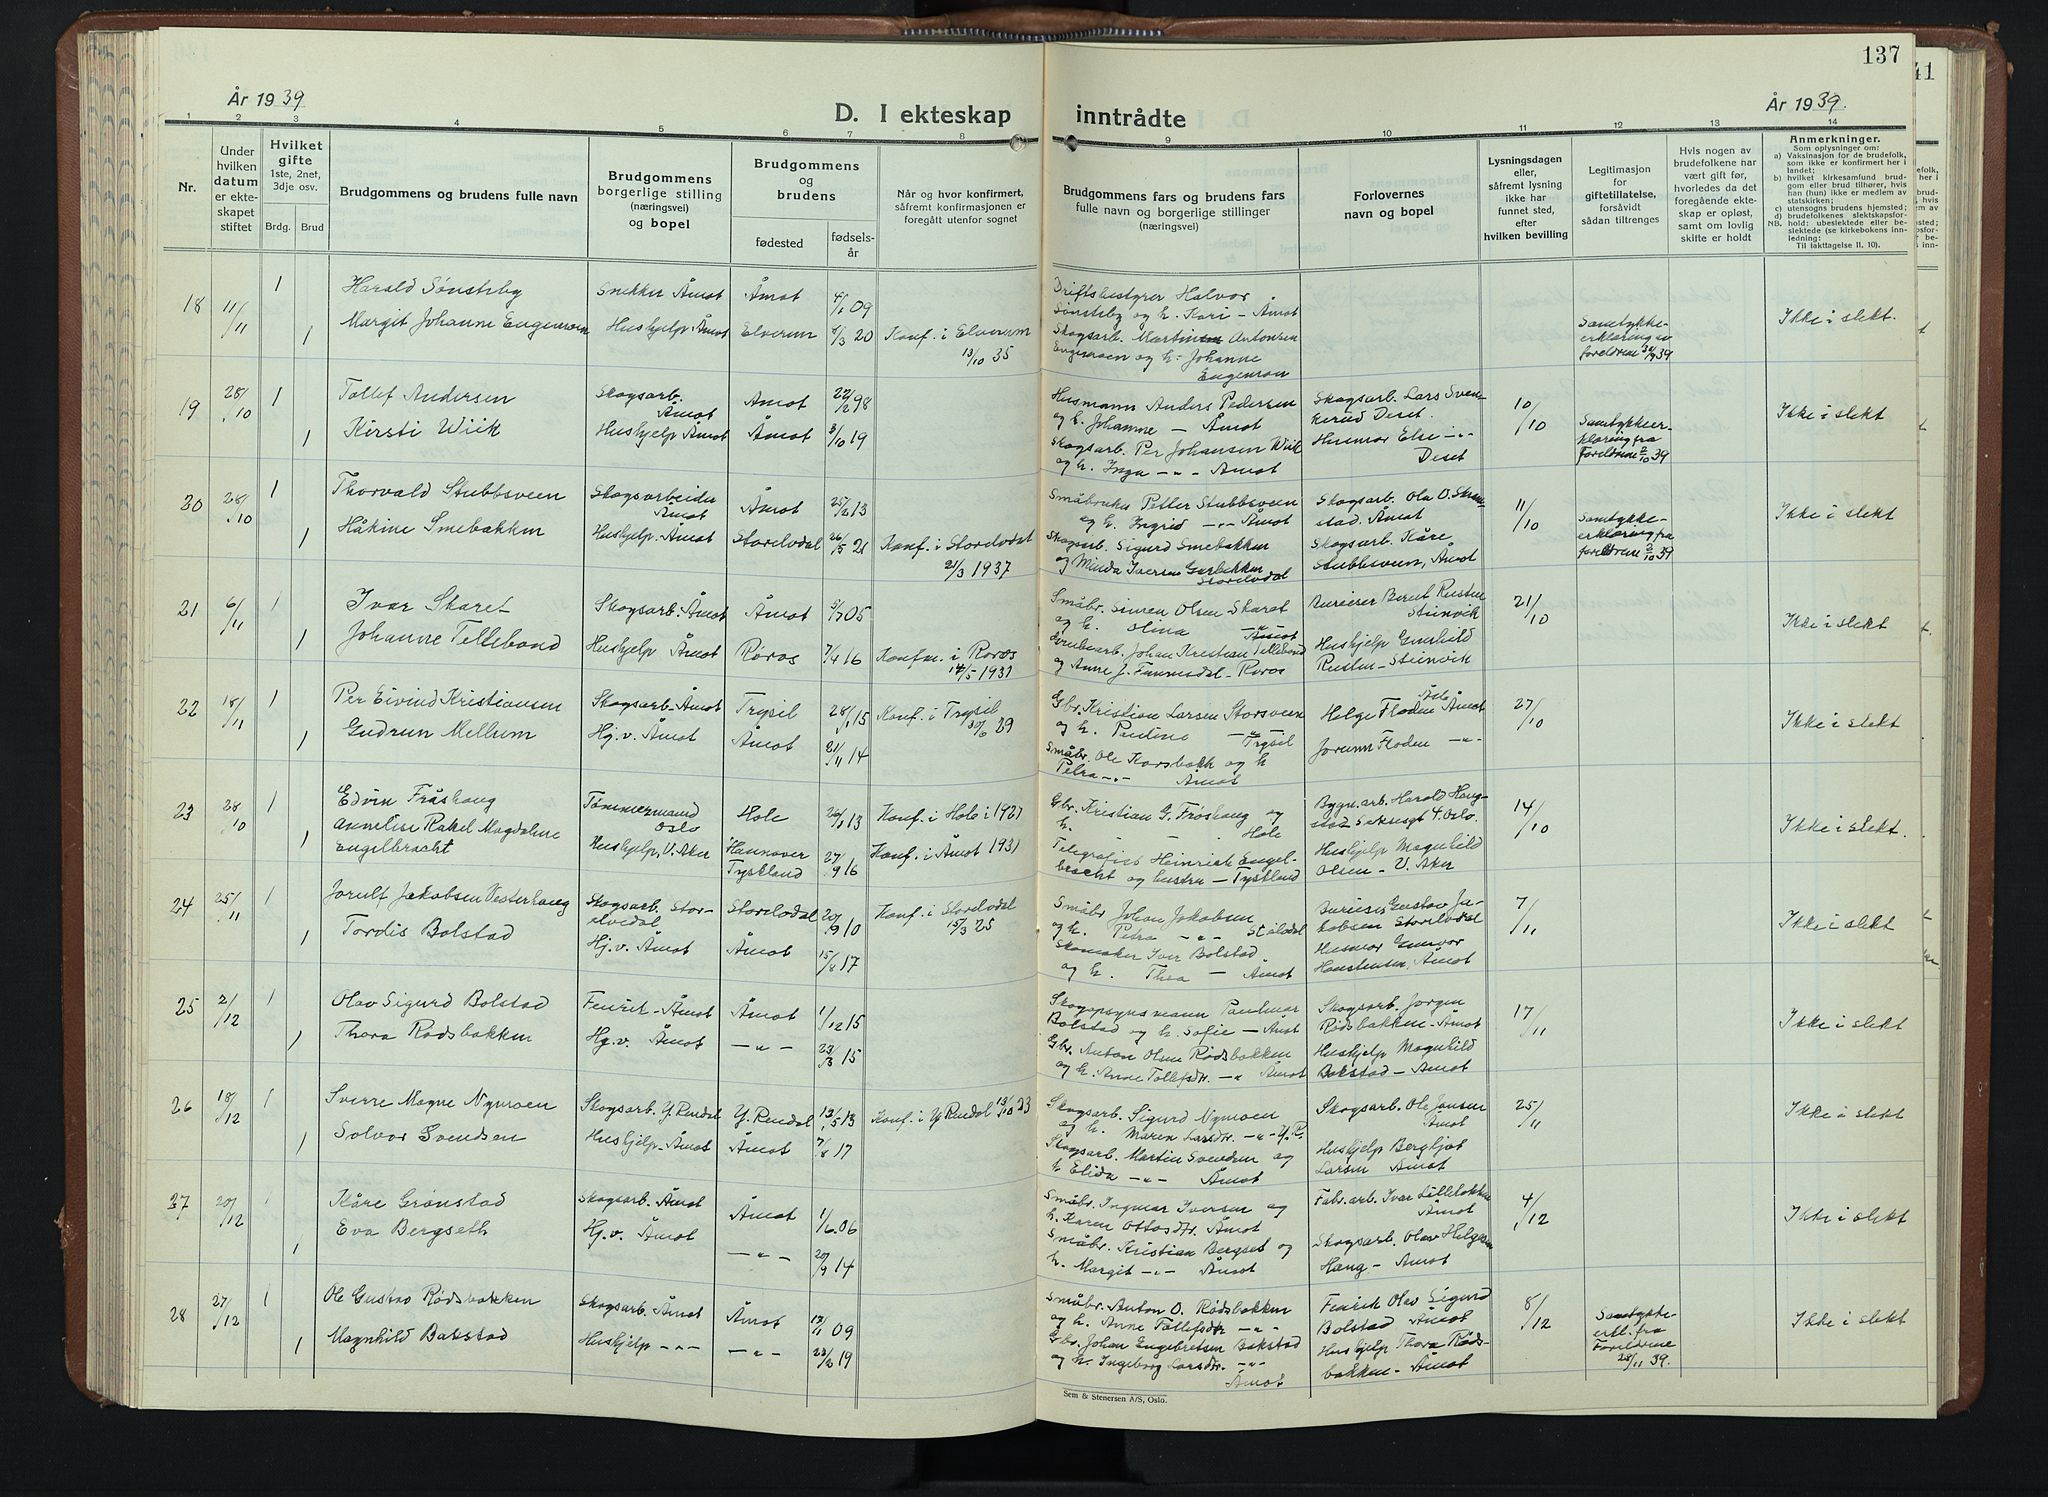 137
41
År 1939
D. I ekteskap
inntrådte
År 1939.
1 2 3 4 5 6 7 8 9 10 11 12 13 14
Nr.
Under
hvilken
datum
er ekte-
skapet
stiftet
Hvilket
gifte
1ste, 2net,
3dje osv.
Brdg. Brud
Brudgommens og brudens fulle navn
Brudgommens
borgerlige stilling
(næringsvei)
og bopel
Brudgommens
og
brudens
fødested
fødsels-
år
Når og hvor konfirmert,
såfremt konfirmasjonen er
foregått utenfor sognet
Brudgommens fars og brudens fars
fulle navn og borgerlige stillinger
(næringsvei)
Forlovernes
navn og bopel
Lysningsdagen
eller,
såfremt lysning
ikke har
funnet sted,
efter
hvilken bevilling
Legitimasjon
for
giftetillatelse,
forsåvidt
sådan tiltrenges
Hvis nogen av
brudefolkene har
vært gift før,
hvorledes da det
foregående ekte-
skap er opløst,
samt om lovlig
skifte er holdt
Anmerkninger.
Som oplysninger om:
a) Vaksinasjon for de brudefolk,
som ikke er konfirmert her i
landet;
b) hvilket kirkesamfund brud-
gom eller brud tilhører, hvis
han (hun) ikke er medlem av
statskirken;
c) utensogns brudens hjemsted;
d) brudefolkenes slektskapsfor-
NB. hold: ubeslektede eller be-
slektede (se kirkebokens inn-
ledning:
Til iakttagelse II. 10).
18 11/11 1 Harald Sønsteby Snekker Åmot Åmot 4/1 09
1 Margit Johanne Engemoen Hushjelp Åmot Elverum 5/3 20 Konf. i Elverum
13/10 35
Driftsbestyrer Halvor
Sønsteby og h. Kari - Åmot
Skogsarb. Martin Antonsen
Engemoen og h. Johanne
Engemoen
Samtykke-
erklæring av
foreldrene 39
Ikke i slekt.
19 28/10 1 Tollef Andersen Skogsarb.
Åmot Åmot 22/2 98
1 Kirsti Wiik Hushjelp Åmot Åmot 3/10 19
Husmann Anders Pedersen
og h. Johanne - Åmot
Skogsarb. Per Johansen Wiik
og h. Inga -"- Åmot
Skogsarb. Lars Sven-
kerud Deset.
Husmor Else -"-
Deset
10/10
Samtykkeer-
klæring fra
foreldrene 2/10 39
Ikke i slekt
20 28/10 1 Thorvald Stubbsveen Skogsarbeider
Åmot Åmot 25/2 13
1 Håkine Smebakken Hushjelp Åmot Storelvdal 26/5 21 Konf. i Storelvdal
21/3 1937
Småbruker Petter Stubbsveen
og h. Ingrid -"- Åmot
Skogsarb. Sigurd Smebakken
og Minda Iversen
Storelvdal
Skogsarb. Ola O. Skram-
stad. Åmot
Skogsarb. Kåre
Stubbsveen, Åmot
11/10
Samtykke-
erklæring fra
foreldrene 2/10 39
Ikke i slekt
21 6/11 1 Ivar Skaret Skogsarb. Åmot Åmot 5/7 05
1 Johanne Tellebond Hushjelp Åmot Røros 7/4 16 Konfm. i Røros
17/5 1931
Småbr. Simen Olsen Skaret
og h. Olina -"- Åmot
Johan Kristian Tellebond
og Anne J. Finnesdal - Røros
Bureiser Bernt Rusten
Steinvik
Hushjelp Gunhild
Rusten - Steinvik
21/10
Ikke i slekt
22 18/11 1 Per Eivind Kristiansen Skogsarb. Åmot Trysil 28/1 15 Konf. i Trysil
30/6 29
1 Gudrun Mellum Hj.v. Åmot Åmot 21/11 14
Gbr. Kristian Larsen Storsveen
og h. Pauline -"- Trysil
Småbr. Ole Korsbakk og h
Petra -"- Åmot
Helge Floden Åmot
Jorunn Floden -"-
27/10
Ikke i slekt
23 28/10 1 Edvin Frøshaug Tømmermand
Oslo Hole 26/1 13 Konf. i Hole i 1927
1 Annelise Rakel Magdalene
Engelbracht Hushjelp, V. Aker Hannover
Tyskland 27/9 16 Konf. i Åmot 1931
Gbr. Kristian G. Frøshaug og
h. Hole
Telegrafist Heinrich Engel-
bracht og hustru - Tyskland
Bygn.arb. Harald Haug-
stad Seksregt 4. Oslo.
Hushjelp Magnhild
Olsen - V. Aker
14/10
Ikke i slekt.
24 25/11 1 Jorulf Jakobsen Vesterhaug Skogsarb. Stor-
elvedal Storelvdal 20/9 10 Konf. i Storelvdal
15/3 25
1 Tordis Bolstad Hj.v. Åmot Åmot 15/8 17
Småbr. Johan Jakobsen
og h. Petra -"- St.elvdal
Skomaker Iver Bolstad
og h. Thea - Åmot
Bureiser Gustav Ja-
kobsen Storelvdal
Husmor Gunvor
Haustensen, Åmot
7/11
Ikke i slekt
25 2/12 1 Olav Sigurd Bolstad Fenrik - Åmot Åmot 1/12 15
1 Thora Rødsbakken Hg.v. Åmot -"- 23/3 15
Skogopsynsmann Paulinar
Bolstad og h. Sofie - Åmot
Gbr. Anton Olsen Rødsbakken
og h. Anne Tollefsdr. -"- Åmot
Skogsarb. Jørgen
Rødsbakken - Åmot
Hushjelp Magnhild
Bakstad - Åmot
17/11
Ikke i slekt
26 18/12 1 Sverre Magne Nymoen Skogsarb. Y. Rendal Y. Rendal 12/5 13 Konf. i Y. Rendal 13/10 23
1 Solvor Svendsen Hushjelp - Åmot Åmot 7/8 17
Skogsarb. Sigurd Nymoen
og h. Maren Larsdtr. -"- Y.R.
Skogsarb. Martin Svendsen og
h Elida -"- Åmot
Skogsarb. Ole Jansen
Åmot
Hushjelp Bergljot
Larsen Åmot
25/11
Ikke i slekt
27 20/12 1 Kåre Grønstad Skogsarb. Åmot Åmot 1/6 06
1 Eva Bergseth Hj.v. Åmot -"- 20/9 14
Småbr. Ingmar Iversen og
h. Karen Ottosdtr. Åmot
Småbr. Kristian Bergset og
h. Margit -"- Åmot
Fabr.arb. Ivar Lillebakken
Åmot
Skogsarb. Olav Helgesen
Haug - Åmot
4/12
Ikke i slekt
28 27/12 1 Ole Gustav Rødsbakken Skogsarb. Åmot Åmot 12/11 09
1 Magnhild Bakstad Hushjelp -"- -"- 23/2 19
Småbr. Anton O. Rødsbakken
og h. Anne Tollefsdtr -"-
Gbr. Johan Engebretsen Bakstad
og h. Ingeborg Larsdtr. -"-
Åmot
Fenrik Olav Sigurd
Bolstad Åmot
Hushjelp Thora Røds-
bakken - Åmot
8/12
Samtykke-
erkl. fra
Foreldrene
28/11 39.
Ikke i slekt
Sem & Stenersen A/S, Oslo.